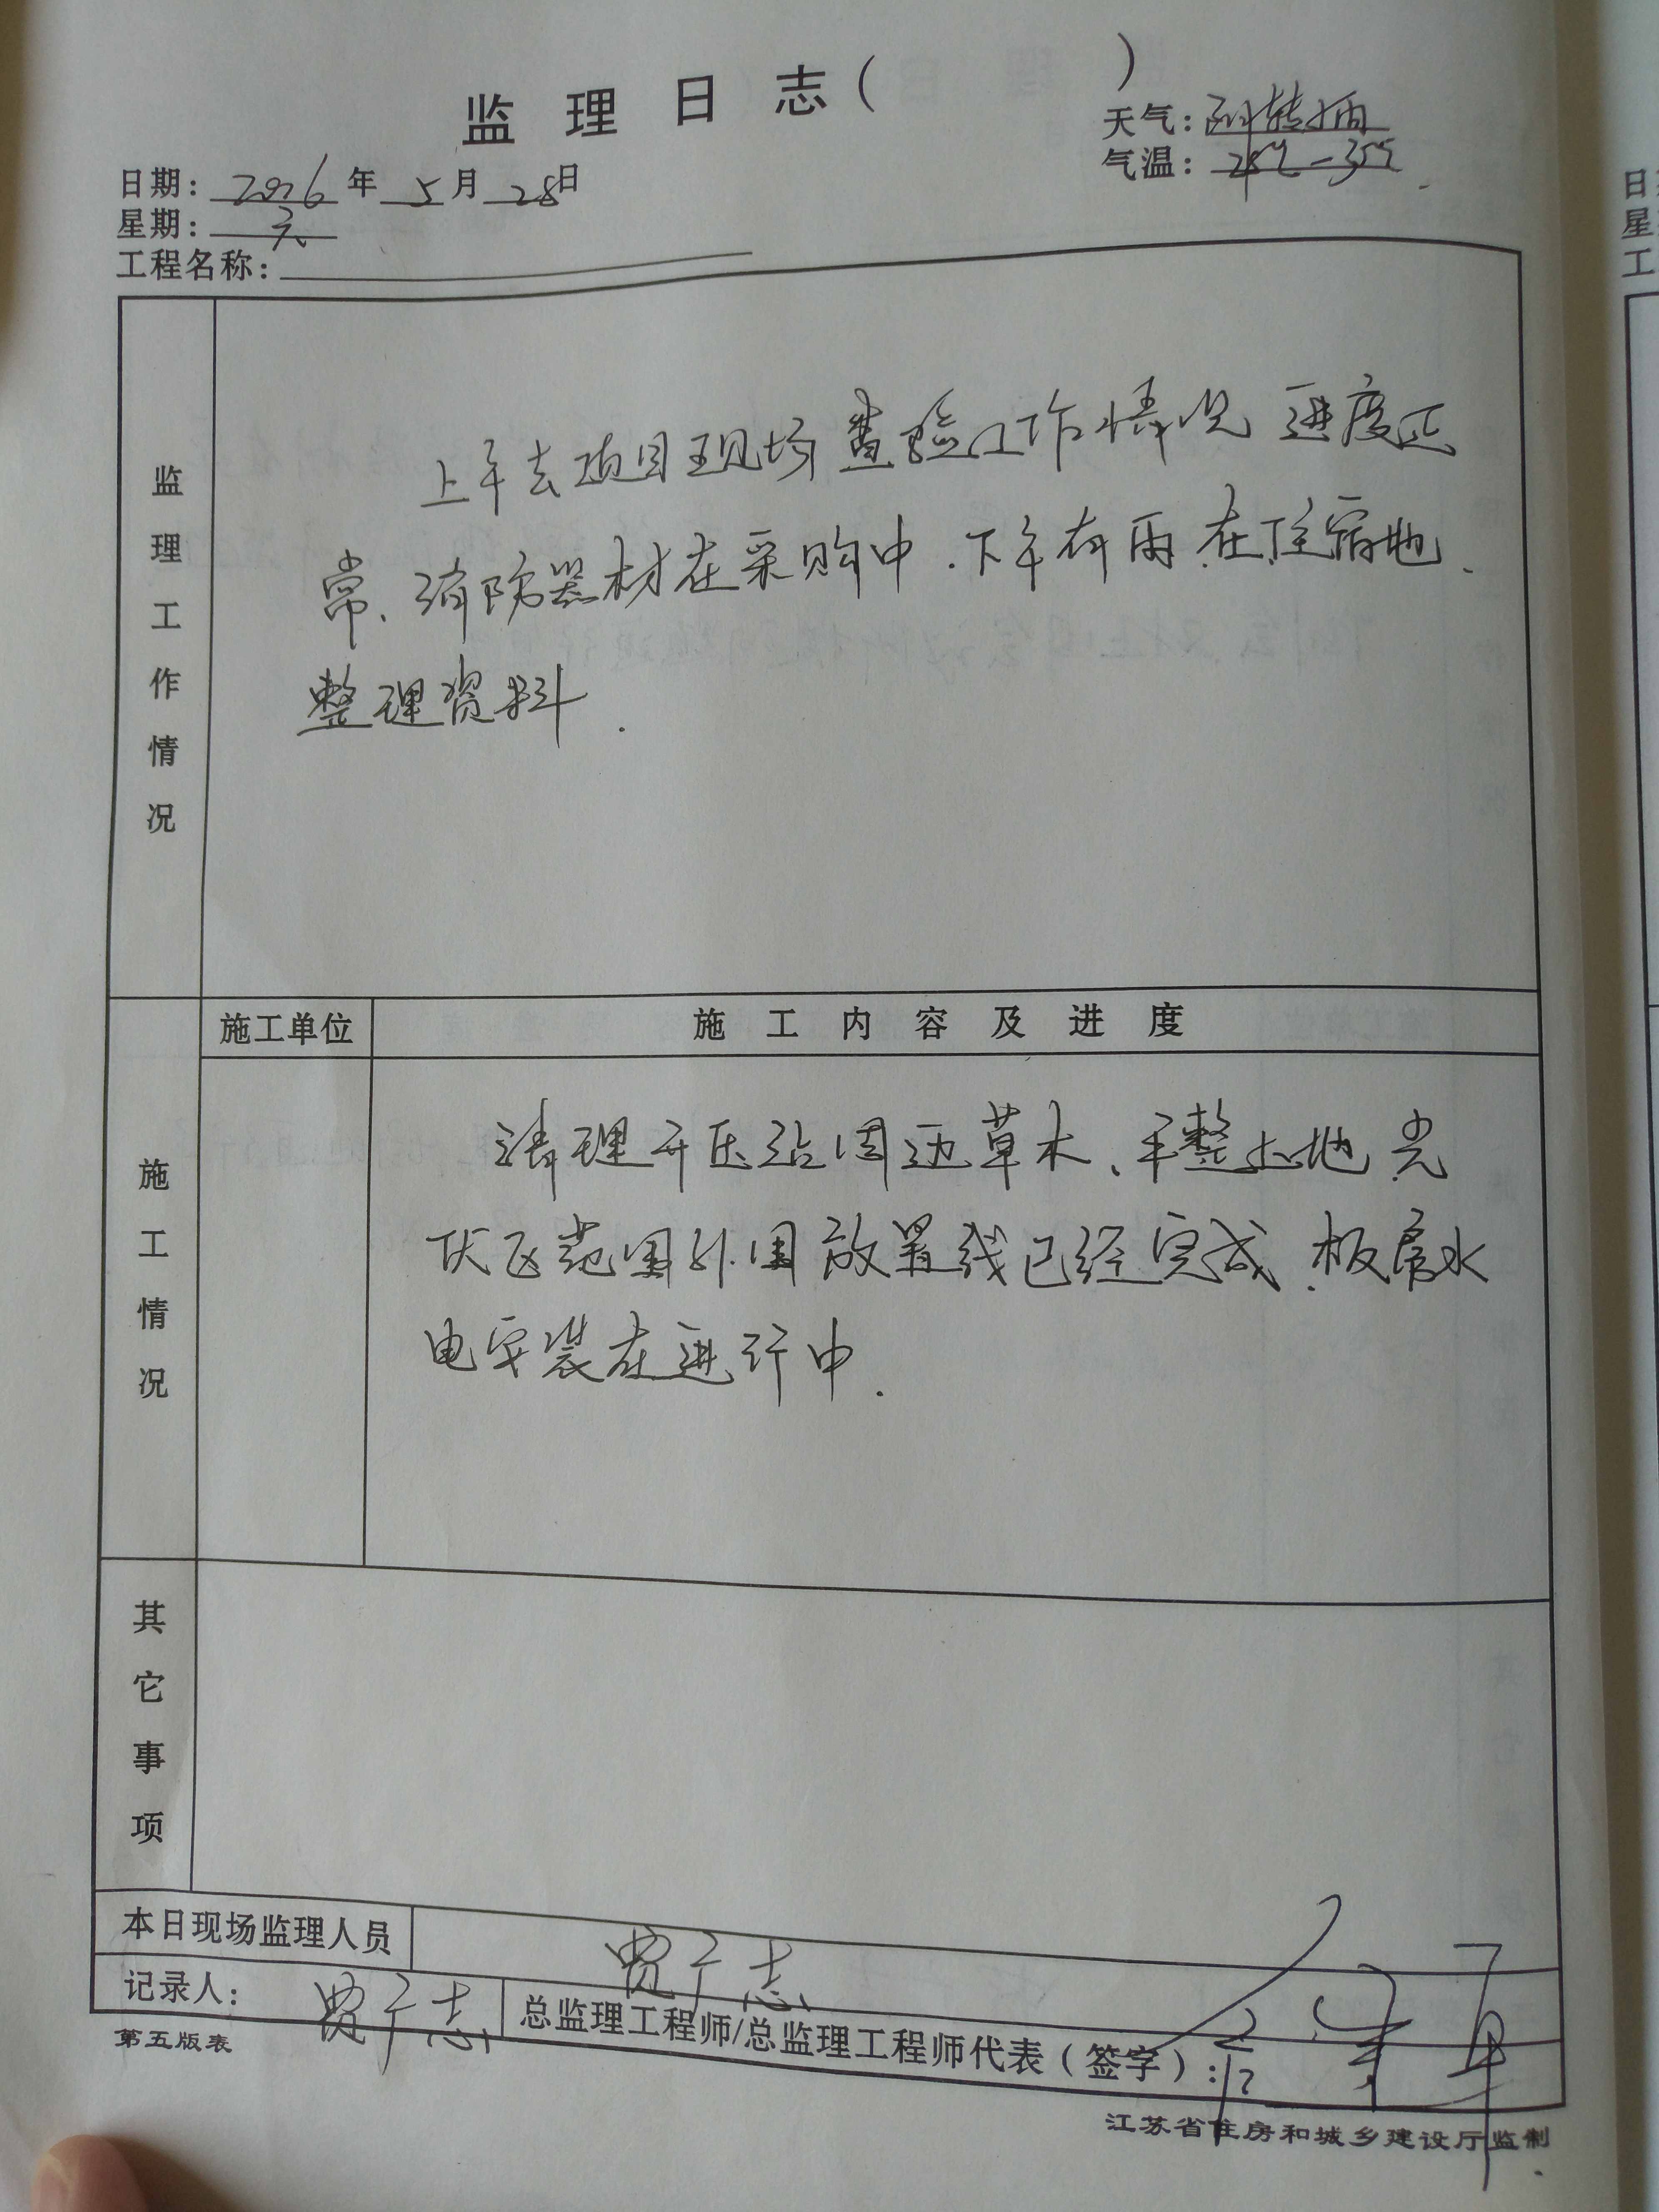 监理日志（　　　）
天气：阴转雨
气温：28℃-35℃
日期：2016年5月28日
星期：六
工程名称：
监理工作情况
上午去项目现场查验工作情况 进度正
常、消防器材在采购中.下午有雨.在住宿地.
整理资料.
施工单位
施工内容及进度
施工情况
清理升压站周边草木、平整土地 光
伏区范围外围放置线已经完成.板房水
电安装在进行中.
其它事项
本日现场监理人员
贾广志
记录人：贾广志
总监理工程师/总监理工程师代表（签字）：
第五版表
江苏省住房和城乡建设厅监制